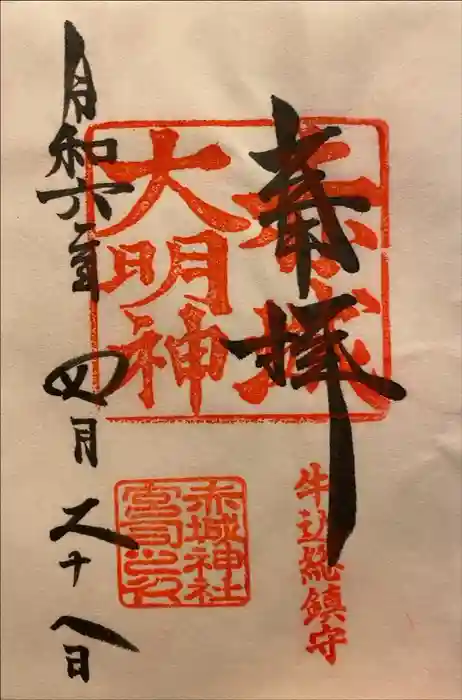 奉拝
赤城
大明神
牛込総鎮守
赤城神社
宮司之印
令和六年
四月
二十八日